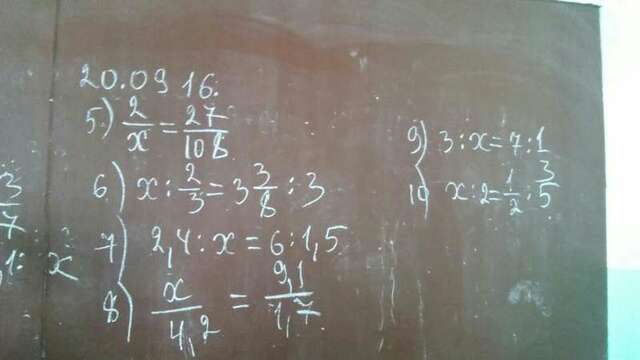 20.09 16.
5) 2/x = 27/108
6) x : 2/3 = 3 3/8 : 3
7) 2,4 : x = 6 : 1,5
8) x/4,2 = 9,1/1,7
9) 3 : x = 7 : 1
10) x : 2 = 1/2 : 3/5
3/7
1 : x